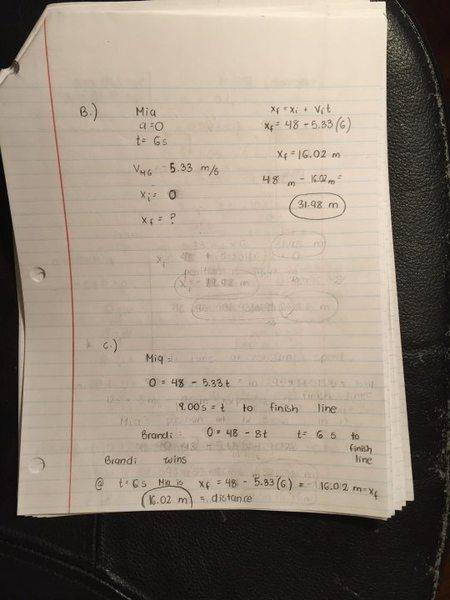 B.) Mia
a=0
t= 6s
5.33 m/s
xi = 0
xf = ?
xf = xi + vit
xf = 48 - 5.33(6)
xf = 16.02 m
48 m - 16.02 m =
31.98 m
C.)
Mia:
0 = 48 - 5.33t
9.00s = t to finish line
Brandi: 0 = 48 - 8t t= 6 s to
finish
line
Brandi wins
@ t=6s Mia is xf = 48 - 5.33(6) = 16.02 m = xf
16.02 m = distance